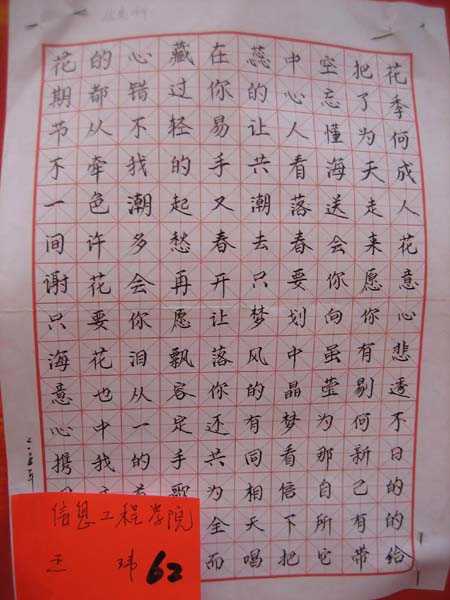 花的心藏在蕊中空把花
期都错过你的心忘了季
节从不轻易让人懂为何
不牵我的手共看海天成
一色潮起又潮落送走人
间许多愁春去春会来花
谢花会再开只要你愿意
只要你愿让梦划向你心
海花泪飘落风中虽有悲
意也从容你的晶莹剔透
心中一定还有梦为何不
携我的手共同看那新日
歌为相信自己的
全天下所有的
而唱把它带给
信息工程学院
王 玮 62